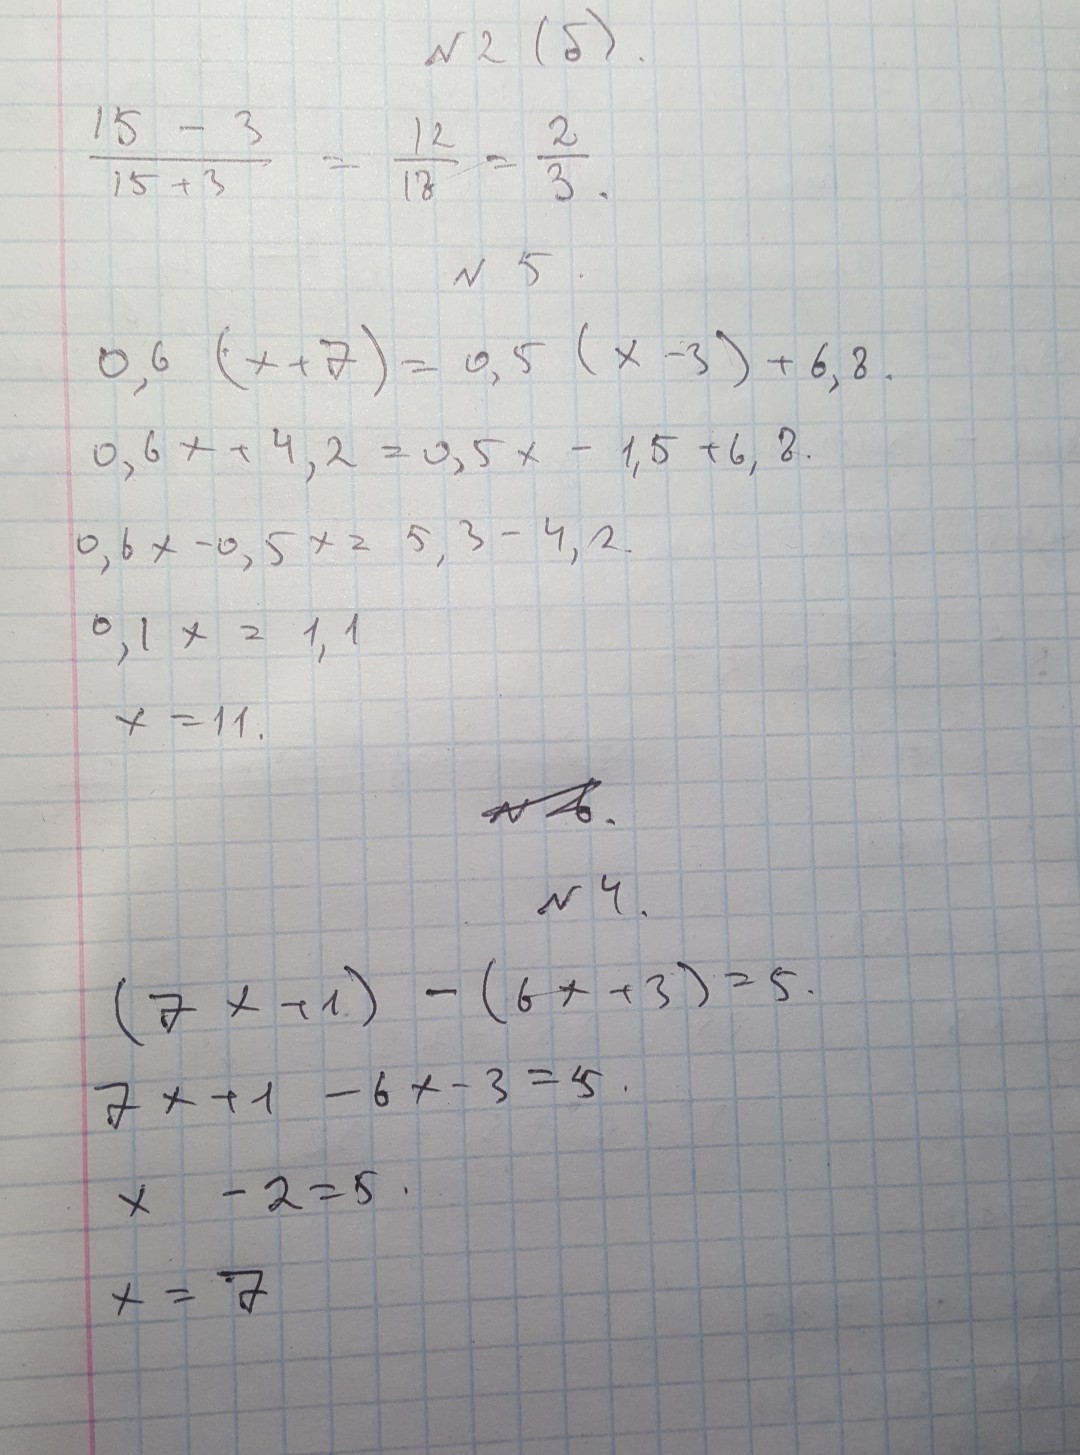 N 2 (б).
15 - 3 / 15 + 3 = 12 / 18 = 2 / 3.
N 5.
0,6 (x + 7) = 0,5 (x - 3) + 6,8.
0,6x + 4,2 = 0,5x - 1,5 + 6,8.
0,6x - 0,5x = 5,3 - 4,2.
0,1x = 1,1
x = 11.
N 6.
N 4.
(7x + 1) - (6x + 3) = 5.
7x + 1 - 6x - 3 = 5.
x - 2 = 5.
x = 7